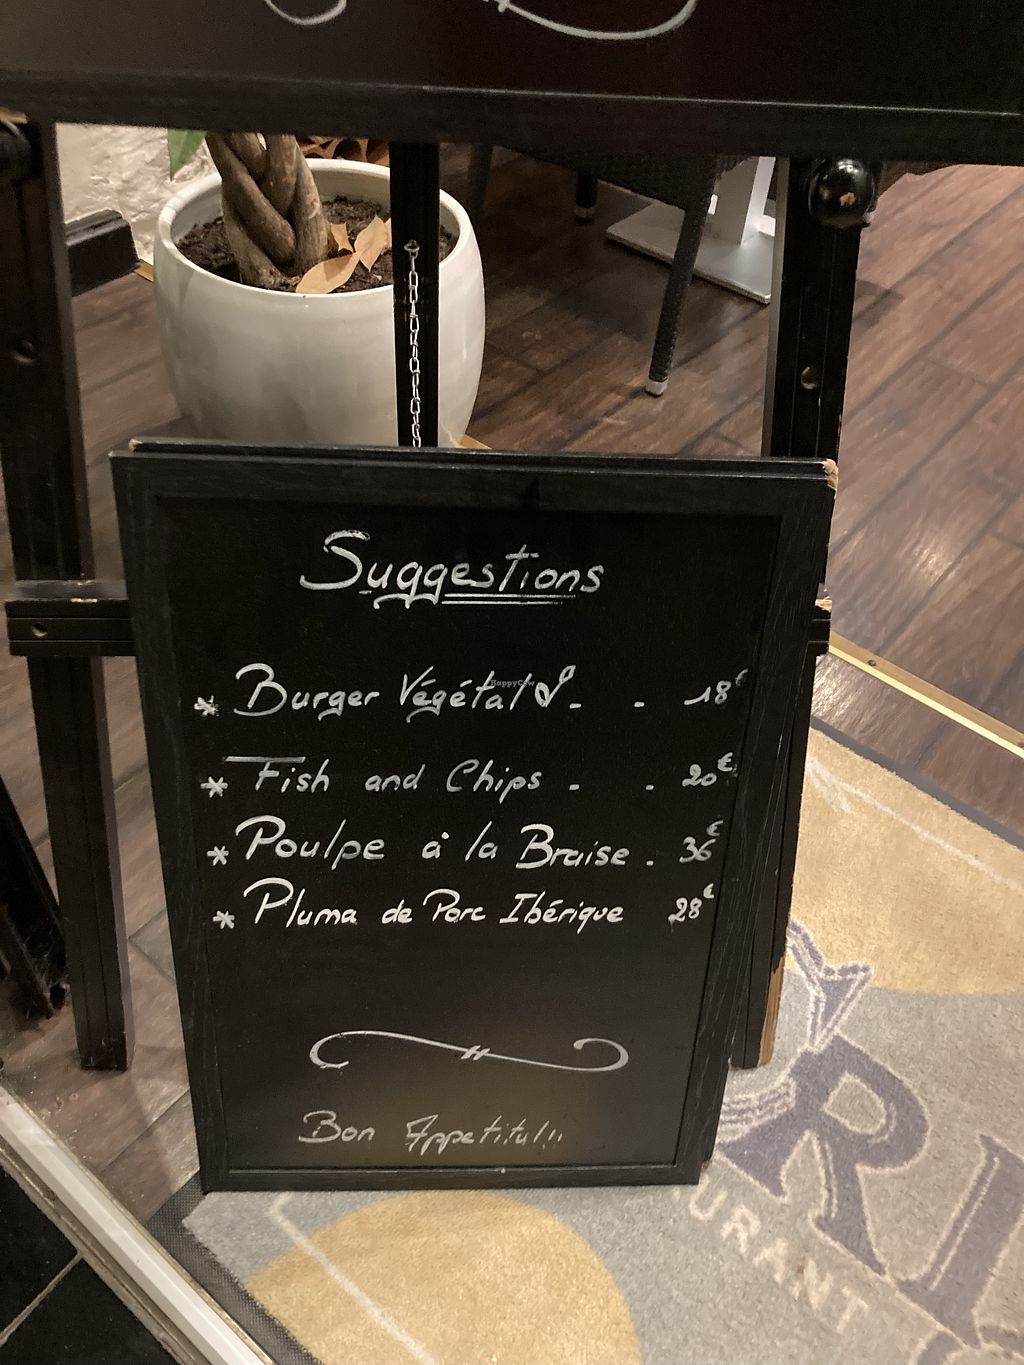 Suggestions
* Burger Végétal . . 18€
* Fish and Chips . . 20€
* Poulpe à la Braise . 36€
* Pluma de Porc Ibérique 28€
Bon Appetit!!!
HappyCow